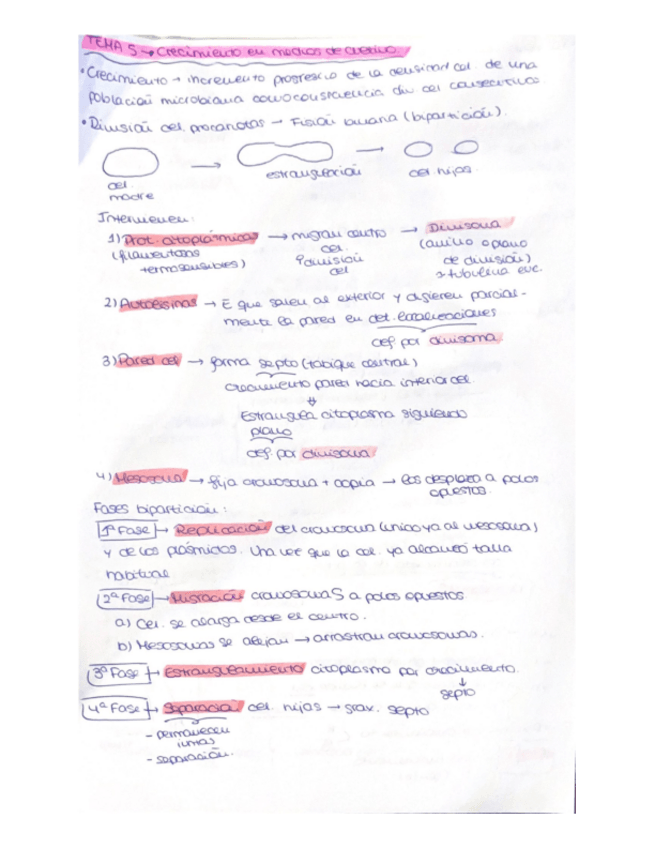 TEMA 5 → Crecimiento en medios de cultivo.
• Crecimiento → incremento progresivo de la densidad cel. de una
población microbiana como consecuencia div cel consecutivas
• División cel. procariotas → Fisión binaria (bipartición).
cel. madre → estrangulación → cel. hijas.
Intervienen:
1) Prot. citoplásmicas → migran centro → Divisoma
(filamentosas cel. (anillo o plano
termosensibles) ↑división de división)
cel → tubulina euc.
2) Autolisinas → E que salen al exterior y digieren parcial-
mente la pared en det. localizaciones
def por divisoma.
3) Pared cel → forma septo (tabique central)
crecimiento pared hacia interior cel.
⇓
Estrangula citoplasma siguiendo
plano
def por divisoma
4) Mesosoma → fija cromosoma + copia → los desplaza a polos
opuestos.
Fases bipartición:
1ª Fase → Replicación del cromosoma (unido ya al mesosoma)
y de los plásmidos. Una vez que la cel. ya alcanzó talla
habitual
2ª Fase → Migración cromosomaS a polos opuestos
a) Cel. se alarga desde el centro.
b) Mesosomas se alejan → arrastran cromosomas.
3ª Fase → Estrangulamiento citoplasma por crecimiento.
↓
septo
4ª Fase → Separación cel. hijas → septo
- permanecen
unidas
- separación.